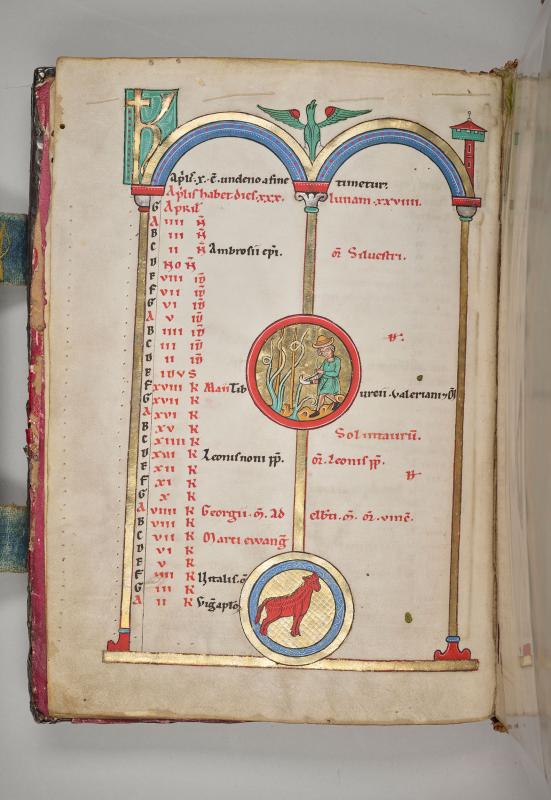 KL
Aprilis .x. ē. undeno a fine timetur.
Aprilis habet dies.xxx. lunam.xxviiii.
G April
A iiii N̄
B iii N̄
C ii N̄ Ambrosii epi. or̄ Siluestri.
D NON
E viii iđ
F vii iđ
G vi iđ
A v iđ
B iiii iđ
C iii iđ
D ii iđ
E IDVS
F xviii K Maii Tiburtii. Valeriani
G xvii K
A xvi K
B xv K Sol in taurū.
C xiiii K
D xiii K Leonis noni pp̄. or̄. Leonis pp̄.
E xii K
F xi K
G x K
A viiii K Georgii. m̄. Adelbti. m̄. or̄.
B viii K
C vii K Marci ewang̃
D vi K
E v K
F iiii K Vitalis. m̄
G iii K
A ii K Vig̃ apto